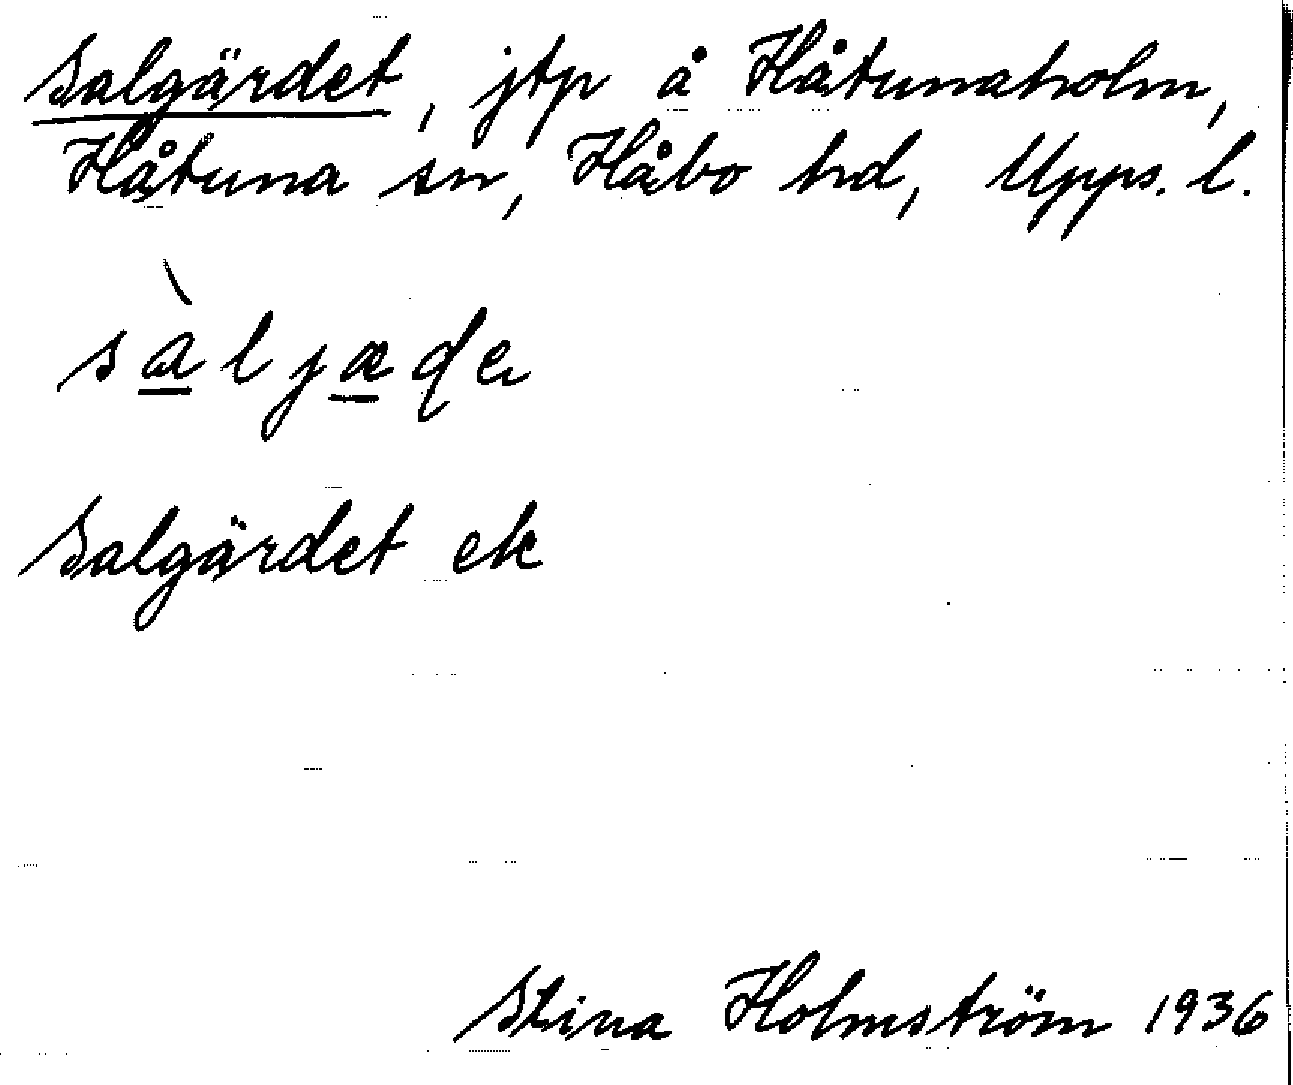 Salgärdet, jtp å Håtunaholm,
Håtuna sn, Håbo hd, Upps. l.
sàljæɖe
Salgärdet ek
Stina Holmström 1936